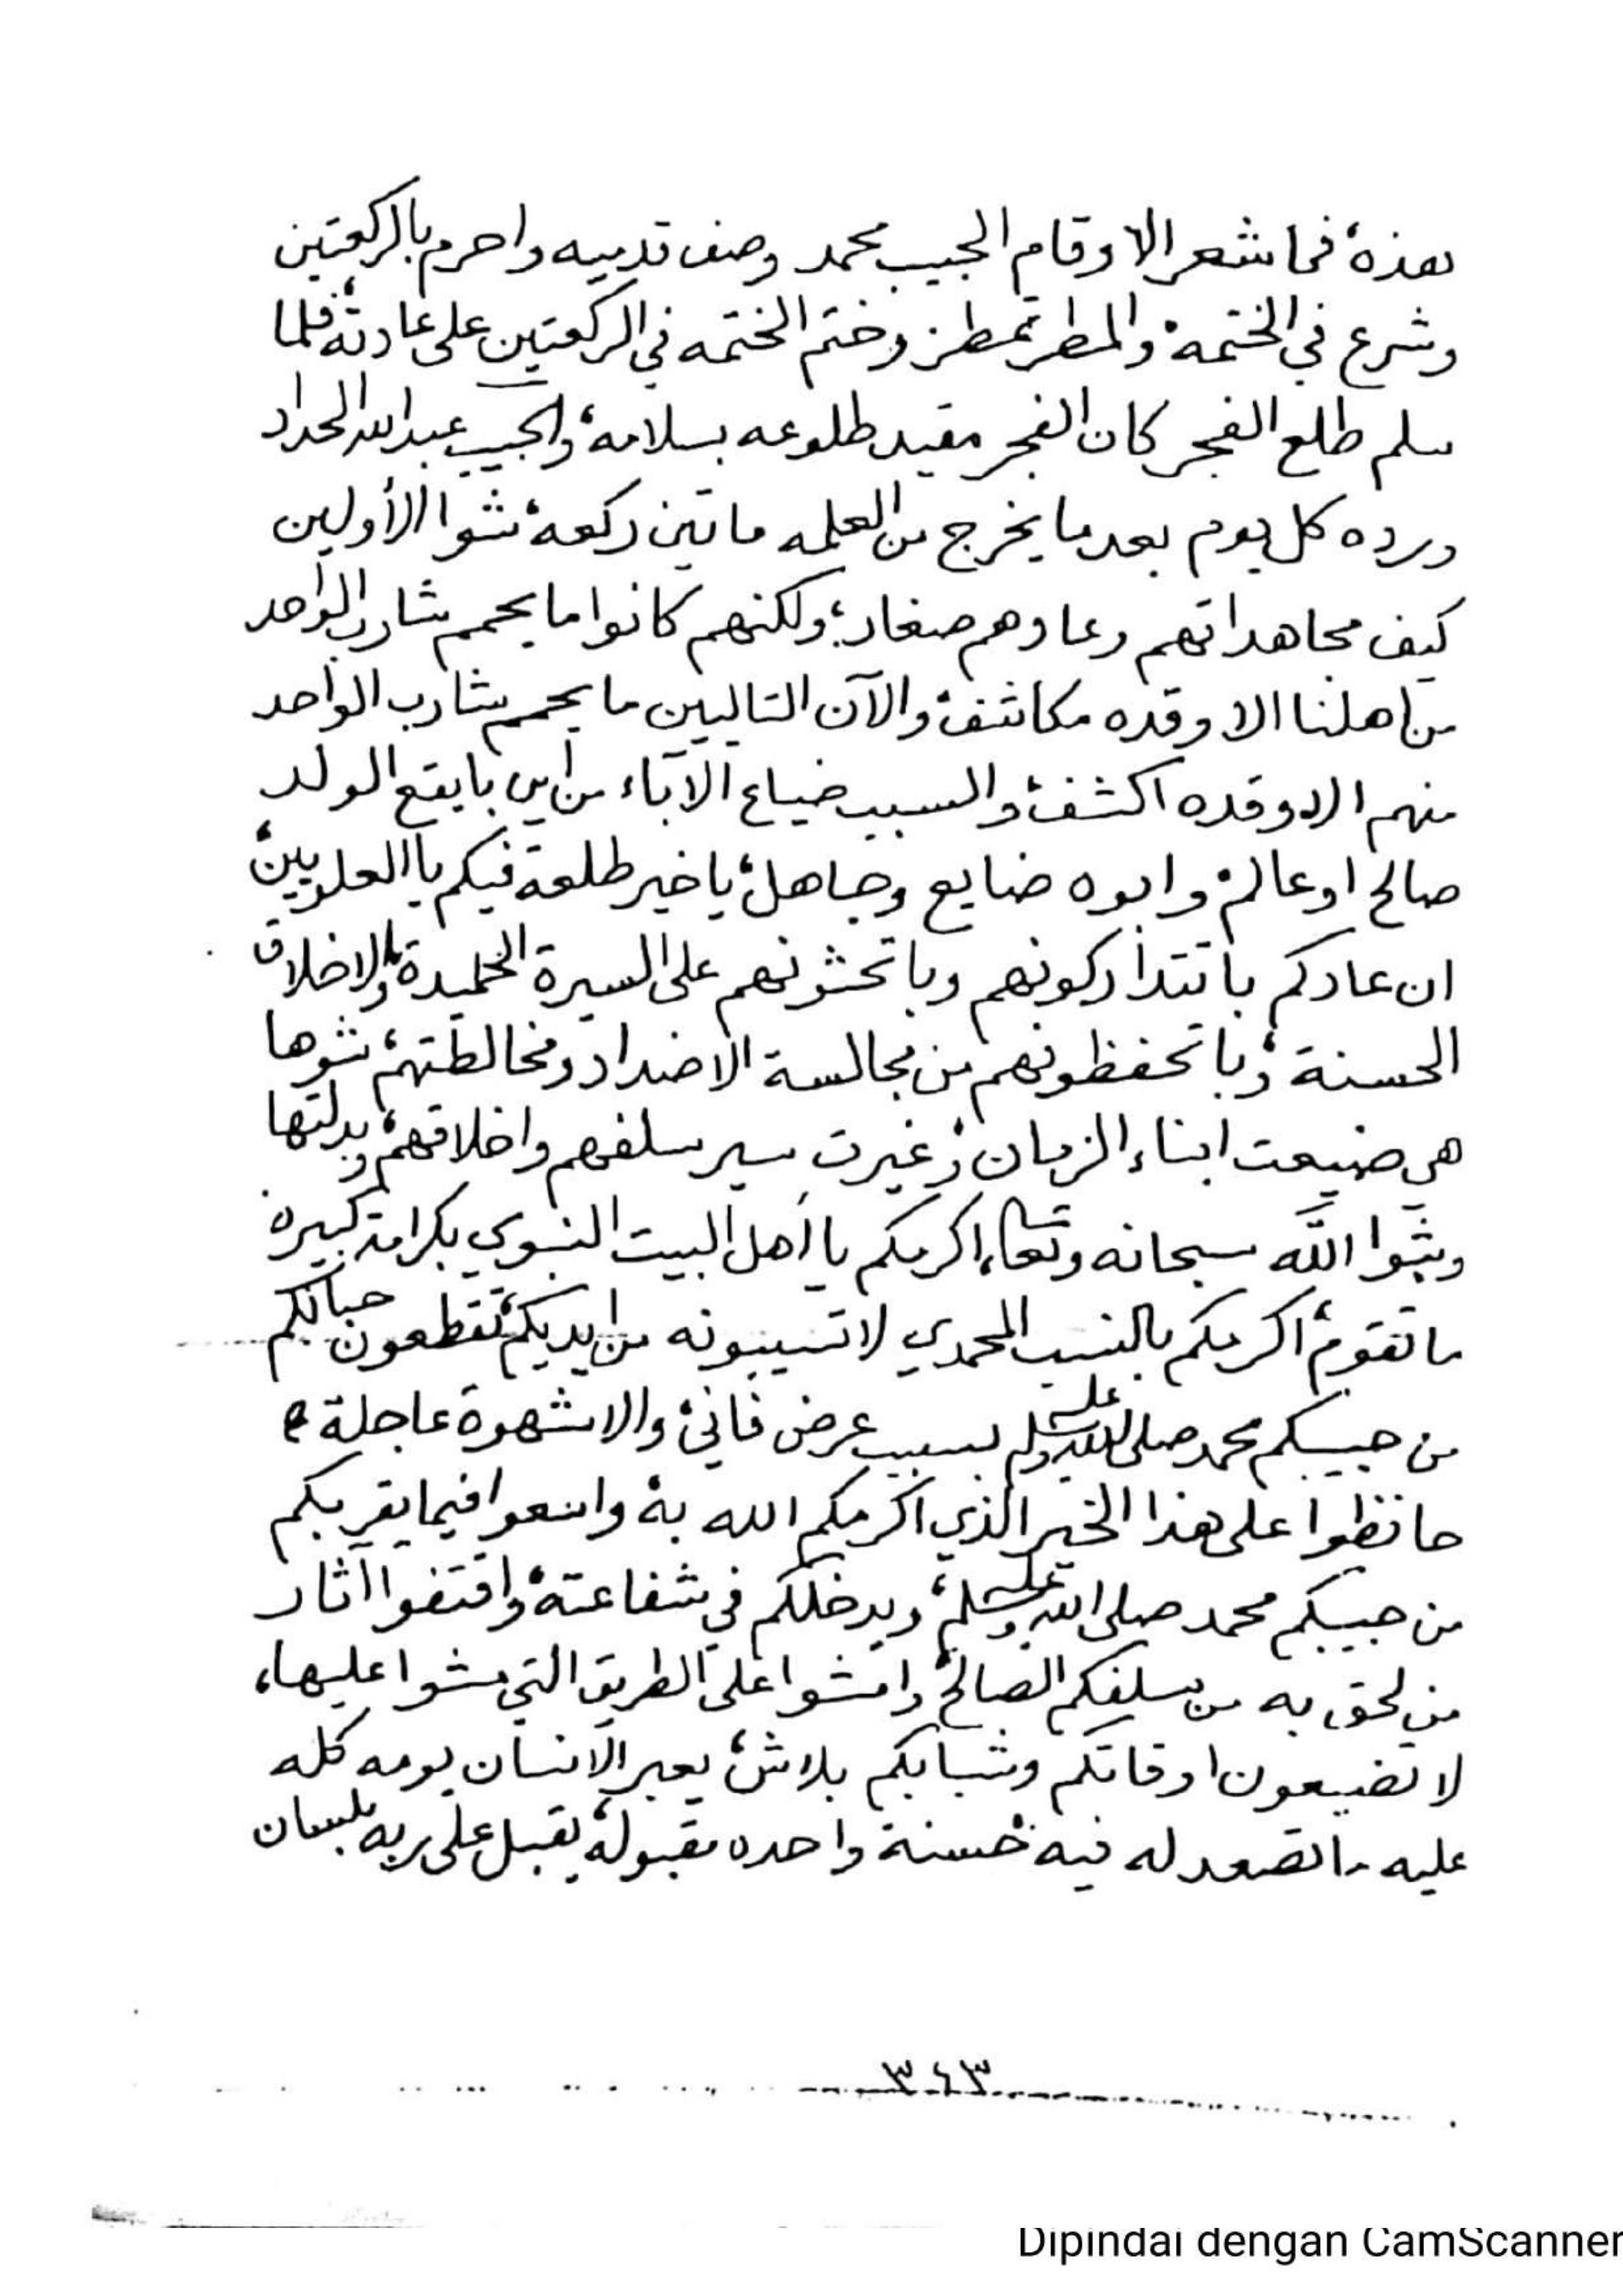 هذه، فما شعر الا وقام الحبيب محمد وصف قدميه واحرم بالركعتين
وشرع في الختمة، والمطر تمطر، وختم الختمه في الركعتين على عادته، فلما
سلم طلع الفجر كان الفجر مقيد طلوعه بسلامه، والحبيب عبدالله الحداد
ورده كل يوم بعد ما يخرج من العلمه ماتين ركعة، شوا الأولين
كيف مجاهداتهم وعادهم صغار، ولكنهم كانوا ما يحمم شارب الواحد
من اهلنا الا وقده مكاشف، والآن التاليين ما يحمم شارب الواحد
منهم الا وقده اكشف، والسبب ضياع الآباء من أين بايقع الولد
صالح او عالم، وابوه ضايع وجاهل، يا خير طلعة فيكم يا العلويين،
ان عادكم باتتداركونهم وباتحثونهم على السيرة الحميدة، والاخلاق
الحسنة، وباتحفظونهم من مجالسة الاضداد ومخالطتهم، شوها
هي ضيعت ابناء الزمان، وغيرت سير سلفهم واخلاقهم، وبدلتها
وشوا الله سبحانه وتعالى، اكرمكم يا اهل البيت النبوي بكرامة كبيرة
ما تقوم، اكرمكم بالنسب المحمدي لا تسيبونه من ايديكم، تقطعون حبالكم
من حبيبكم محمد صلى الله عليه وسلم بسبب عرض فاني، والا شهوة عاجلة
حافظوا على هذا الخير الذي اكرمكم الله به، واسعوا فيما يقربكم
من حبيبكم محمد صلى الله عليه وسلم، ويدخلكم في شفاعته، واقتفوا آثار
من لحق به من سلفكم الصالح، وامشوا على الطريق التي مشوا عليها،
لا تضيعون اوقاتكم وشبابكم بلاش، يعبر الانسان يومه كله
عليه ما تصعد له فيه حسنة واحده مقبولة، يقبل على ربه بلسان
٣٤٣
Dipindai dengan CamScanner